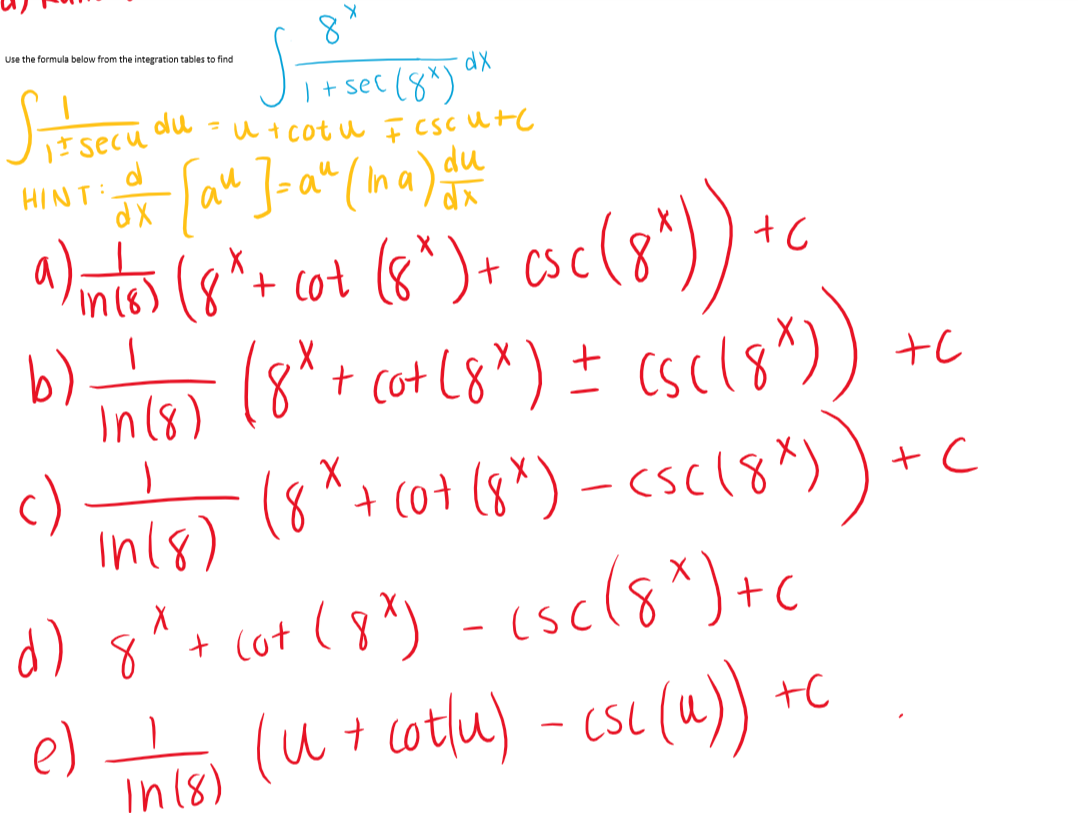 Use the formula below from the integration tables to find ∫ 8^x / (1 + sec(8^x)) dx
∫ 1 / (1 ± sec u) du = u + cot u ∓ csc u + C
HINT: d/dx [a^u] = a^u (ln a) du/dx
a) 1/ln(8) (8^x + cot (8^x) + csc(8^x)) + C
b) 1/ln(8) (8^x + cot(8^x) ± csc(8^x)) + C
c) 1/ln(8) (8^x + cot(8^x) - csc(8^x)) + C
d) 8^x + cot(8^x) - csc(8^x) + C
e) 1/ln(8) (u + cot(u) - csc(u)) + C